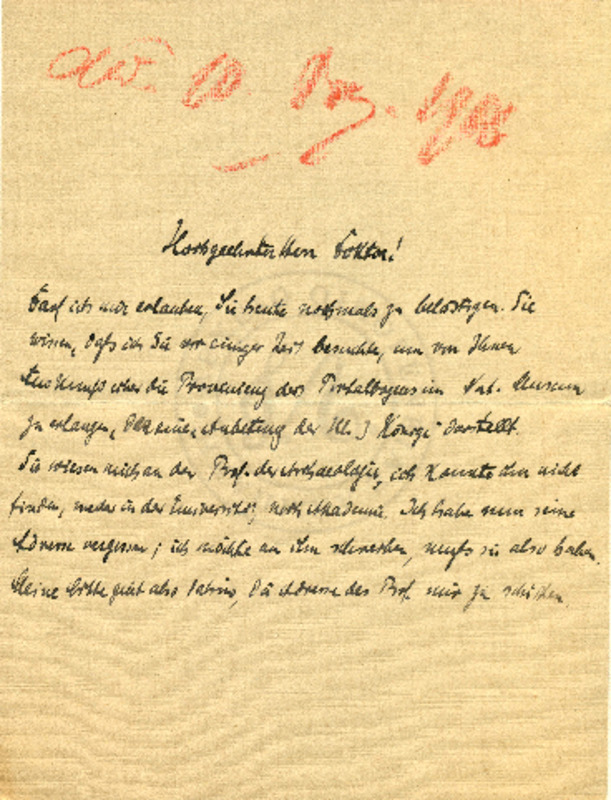 10. Dez. 1908
Hochgeehrter Herr Doktor!
Darf ich mir erlauben, Sie heute nochmals zu belästigen. Sie
wissen, daß ich Sie vor einiger Zeit besuchte, um von Ihnen
Auskunft über die Provenienz des Portalbogens im Nat. Museum
zu erlangen, der eine Anbetung der Hl. 3 Könige darstellt.
Sie wiesen mich an den Prof. der Archaeologie, ich konnte ihn nicht
finden, weder in der Universität, noch Akademie. Ich habe nun seine
Adresse vergessen; ich möchte an ihm schreiben, muß sie also haben.
Meine Bitte geht also dahin, die Adresse des Prof. mir zu schicken.